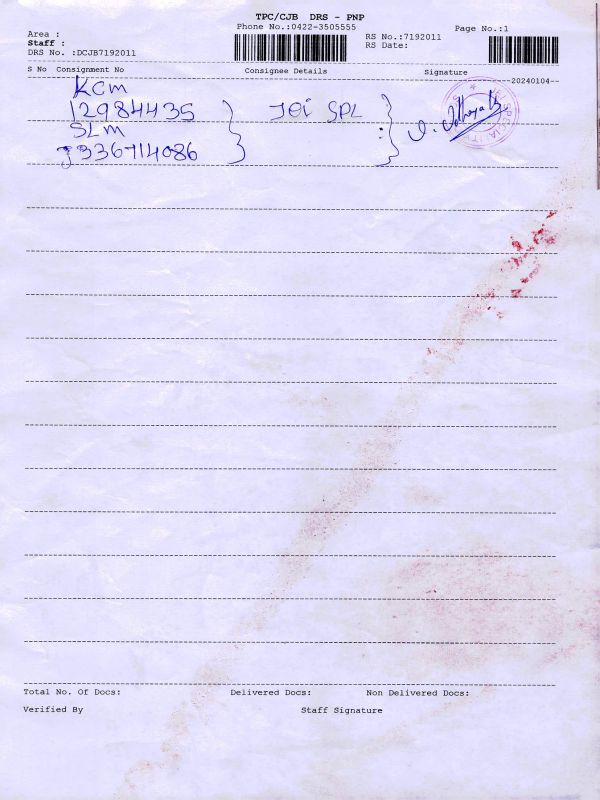 TPC/CJB DRS - PNP
Phone No.:0422-3505555
Page No.:1
Area :
RS No.:7192011
Staff :
RS Date:
DRS No. :DCJB7192011
S No Consignment No Consignee Details Signature
20240104
KCM
12984435 JEi SPL
SLM
9336714086
Total No. Of Docs: Delivered Docs: Non Delivered Docs:
Verified By Staff Signature